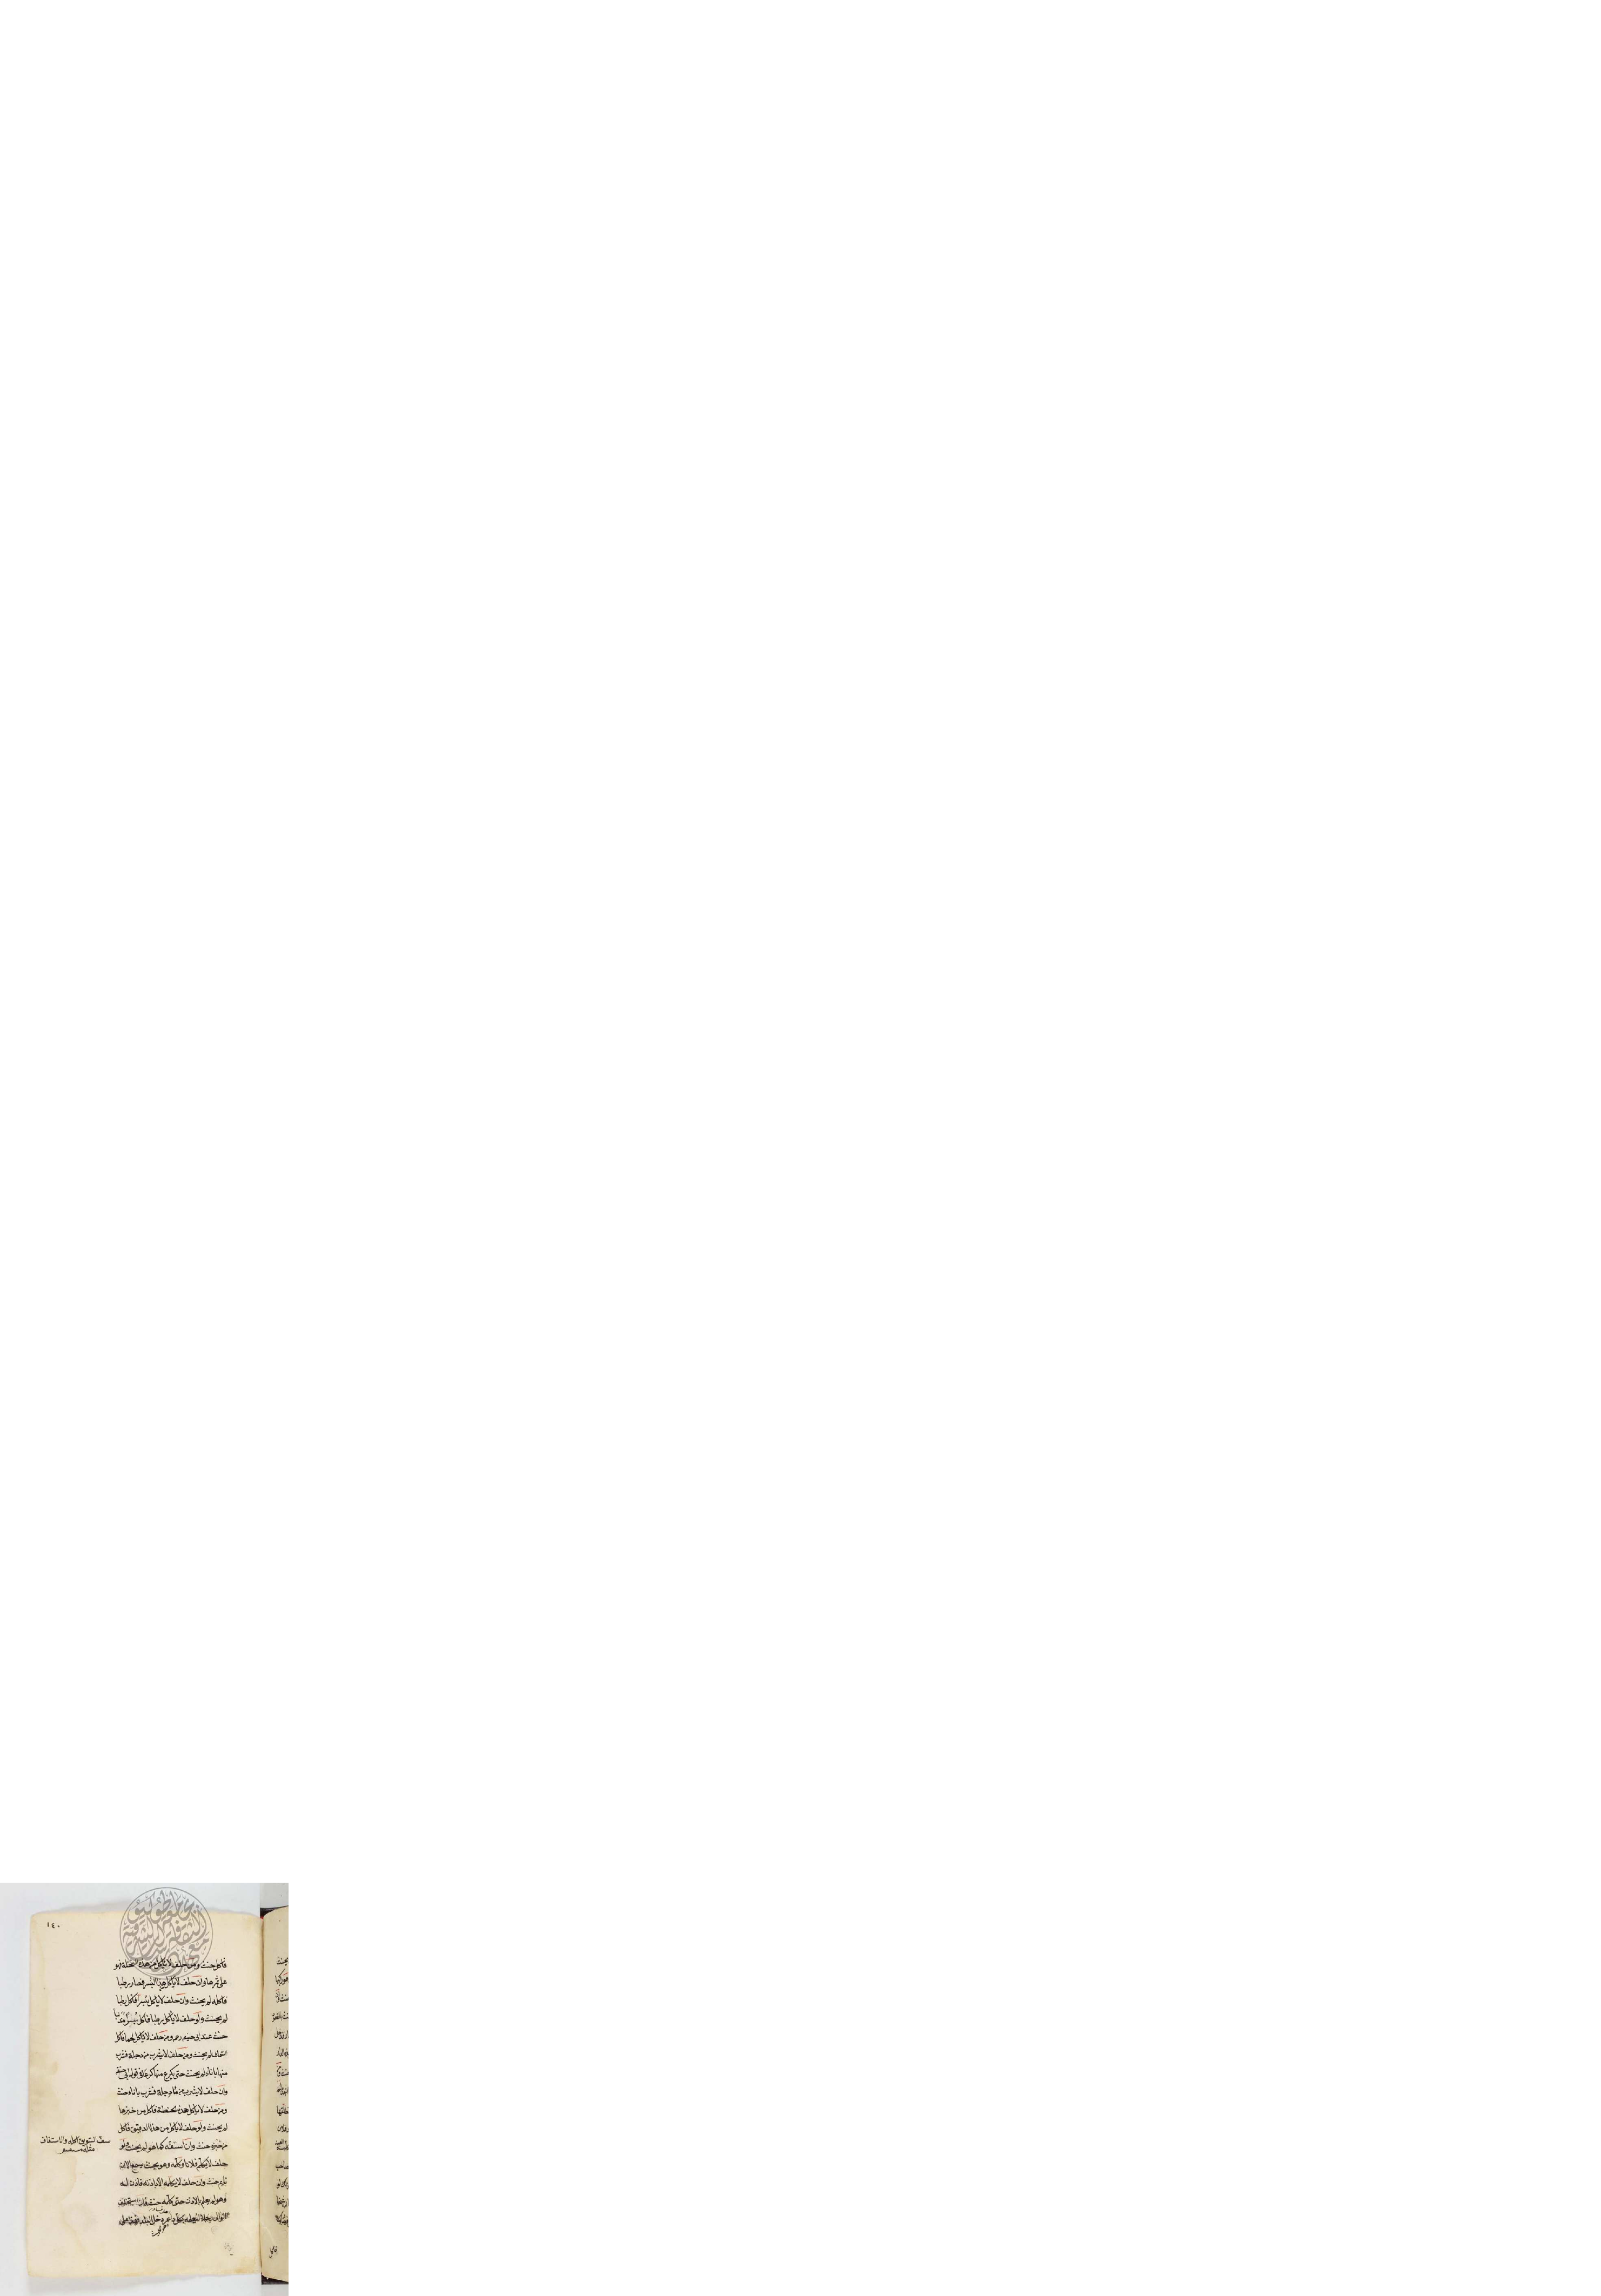 ١٤٠
فاكل حنث ومن حلف لا ياكل من هذه النخلة فهو
على ثمرها وان حلف لا ياكل هذا البسر فصار رطبا
فاكله لم يحنث وان حلف لا ياكل بسرا فاكل رطبا
لم يحنث ولو حلف لا ياكل رطبا فاكل بسرا مذنبا
حنث عند ابي حنيفة ومن حلف لا ياكل لحما فاكل
السمك لم يحنث ومن حلف لا يشرب من دجلة فشرب
منها باناء لم يحنث حتى يكرع منها كرعا في قول ابي حنيفة
وان حلف لا يشرب من ماء دجلة فشرب باناء حنث
ومن حلف لا ياكل هذه الحنطة فاكل من خبزها
لم يحنث ولو حلف لا ياكل من هذا الدقيق فاكل
من خبزه حنث وان استفه كما هو لم يحنث ولو
حلف لا يكلم فلانا وكلمه وهو بحيث يسمع الا انه
نايم حنث وان حلف لا يكلمه الا باذنه فاذن له
وهو لم يعلم بالاذن حتى كلمه حنث فان استحلف
الوالي رجلا ليعلمه بكل داعر دخل البلد فهذا على
سف السويق اكله والاستفاف
مثله